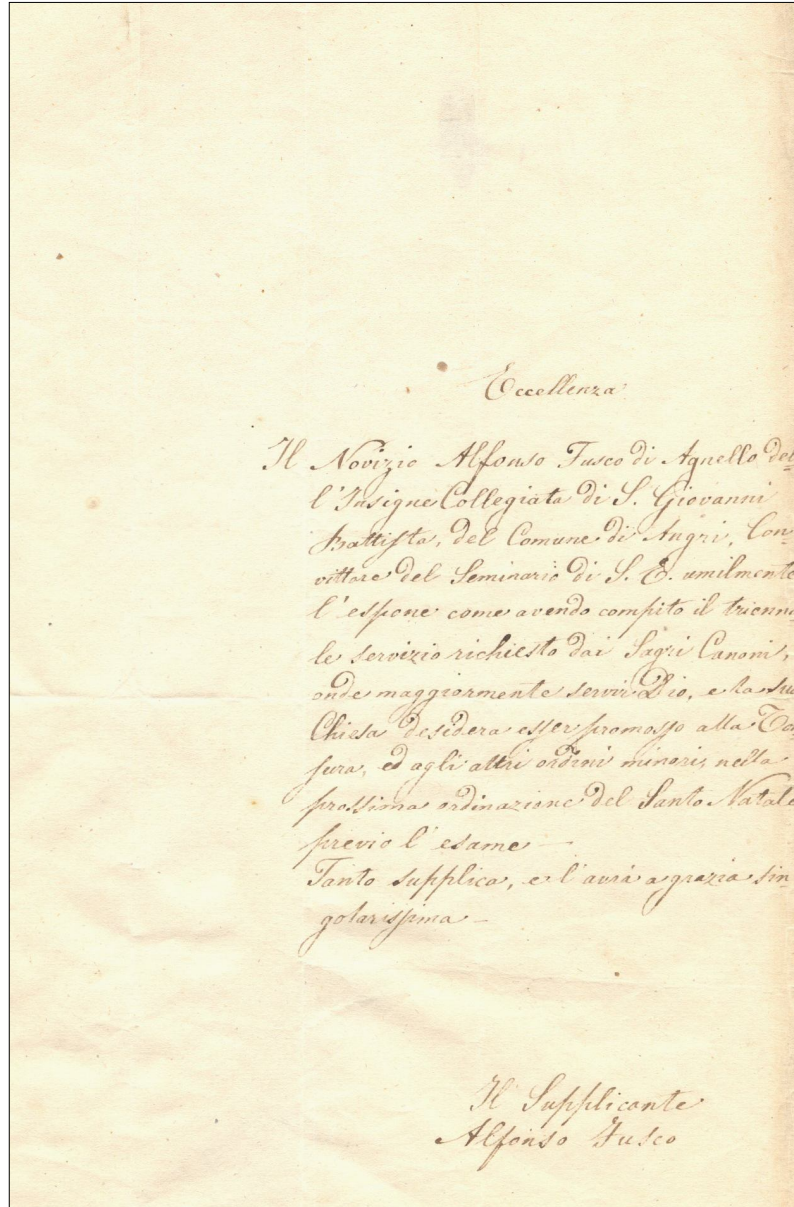 Eccellenza
Il Novizio Alfonso Fusco di Agnello del=
l'Insigne Collegiata di S. Giovanni
Battista, del Comune di Angri, Con=
vittore del Seminario di S. E. umilmente
l'espone come avendo compito il trienna
le servizio richiesto dai Sagri Canoni,
onde maggiormente servir Dio, e la sua
Chiesa desidera esser promosso alla Ton
sura, ed agli altri ordini minori, nella
prossima ordinazione del Santo Natale
previo l'esame —
Tanto supplica, e l'avrà a grazia sin=
golarissima —
Il Supplicante
Alfonso Fusco